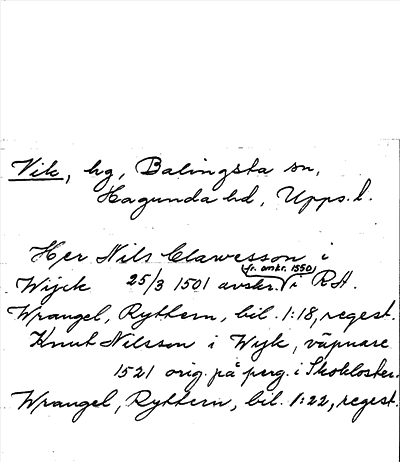 Vik, hg, Balingsta sn,
Hagunda hd, Upps. l.
Her Nils Clawesson i
Wijck 25/3 1501 avskr. (fr. omkr. 1550) i RA.
Wrangel, Ryttern, bil. 1:18, regest.
Knut Nilsson i Wijk, väpnare
1521 orig. på perg. i Skokloster.
Wrangel, Ryttern, bil. 1:22, regest.